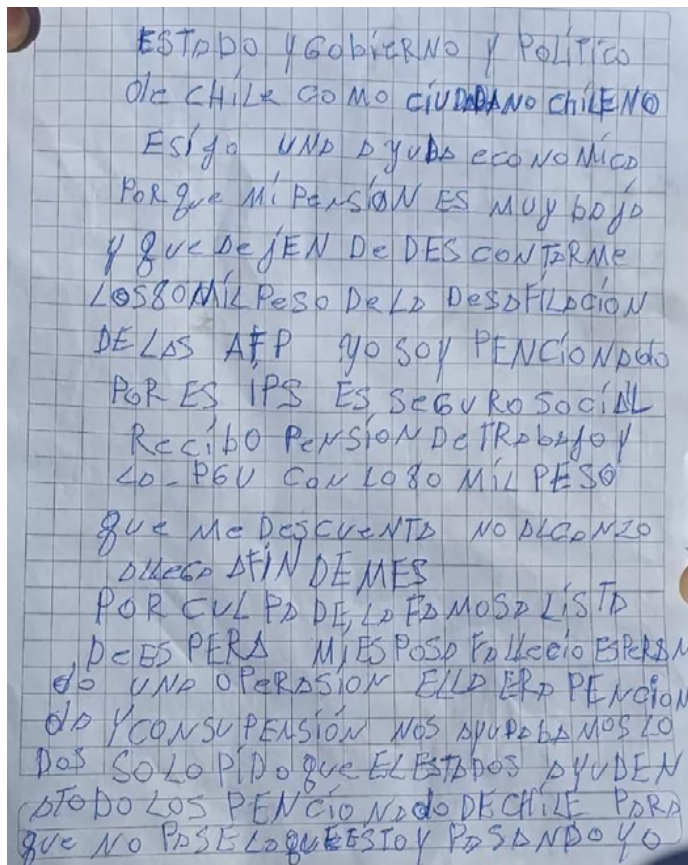 ESTADO Y GobiERNO Y POLíTICO
de CHiLe COMO CiUDADANO CHiLENO
ESíJO UNA AYUDA eCONOMíCA
PORque Mi PeNSióN ES MUY bAJA
Y que DeJEN De DESCONTARMe
LOS 80 MíL PeSO De LA DeSAFíLACióN
DE LAS AFP YO SOY PENCíONAdo
POR ES IPS ES SeGURO SOCíAL
ReCíbO PeNSióN De TRAbAJO Y
LA-PGU CON LO 80 MíL PESO
que Me DeSCUeNTA NO ALCANZO
ALLeGA AFíN DE MES
POR CULPA DE, LA FAMOSA LíSTA
De ESPERA Mi ESPOSA FALLeCió ESPERAN
do UNA OPERASíON ELLA ERA PENCioN
dA Y CON SU PENSióN NOS AYUDAbAMOS LO
DOS SOLO PíDO que EL ESTADOS AYUDEN
ATODO LOS PENCíONADdO DE CHíLE PARA
que NO PASE LO que ESTOY PASANDO YO